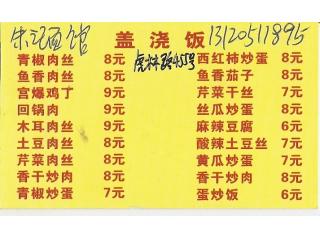 朱记面馆 盖浇饭 13120511895
虎林路455号
青椒肉丝 8元 西红柿炒蛋 8元
鱼香肉丝 8元 鱼香茄子 8元
宫爆鸡丁 9元 芹菜干丝 7元
回锅肉 9元 丝瓜炒蛋 8元
木耳肉丝 9元 麻辣豆腐 6元
土豆肉丝 8元 酸辣土豆丝 7元
芹菜肉丝 8元 黄瓜炒蛋 7元
香干肉丝 8元 香干炒肉 8元
青椒炒蛋 7元 蛋炒饭 6元